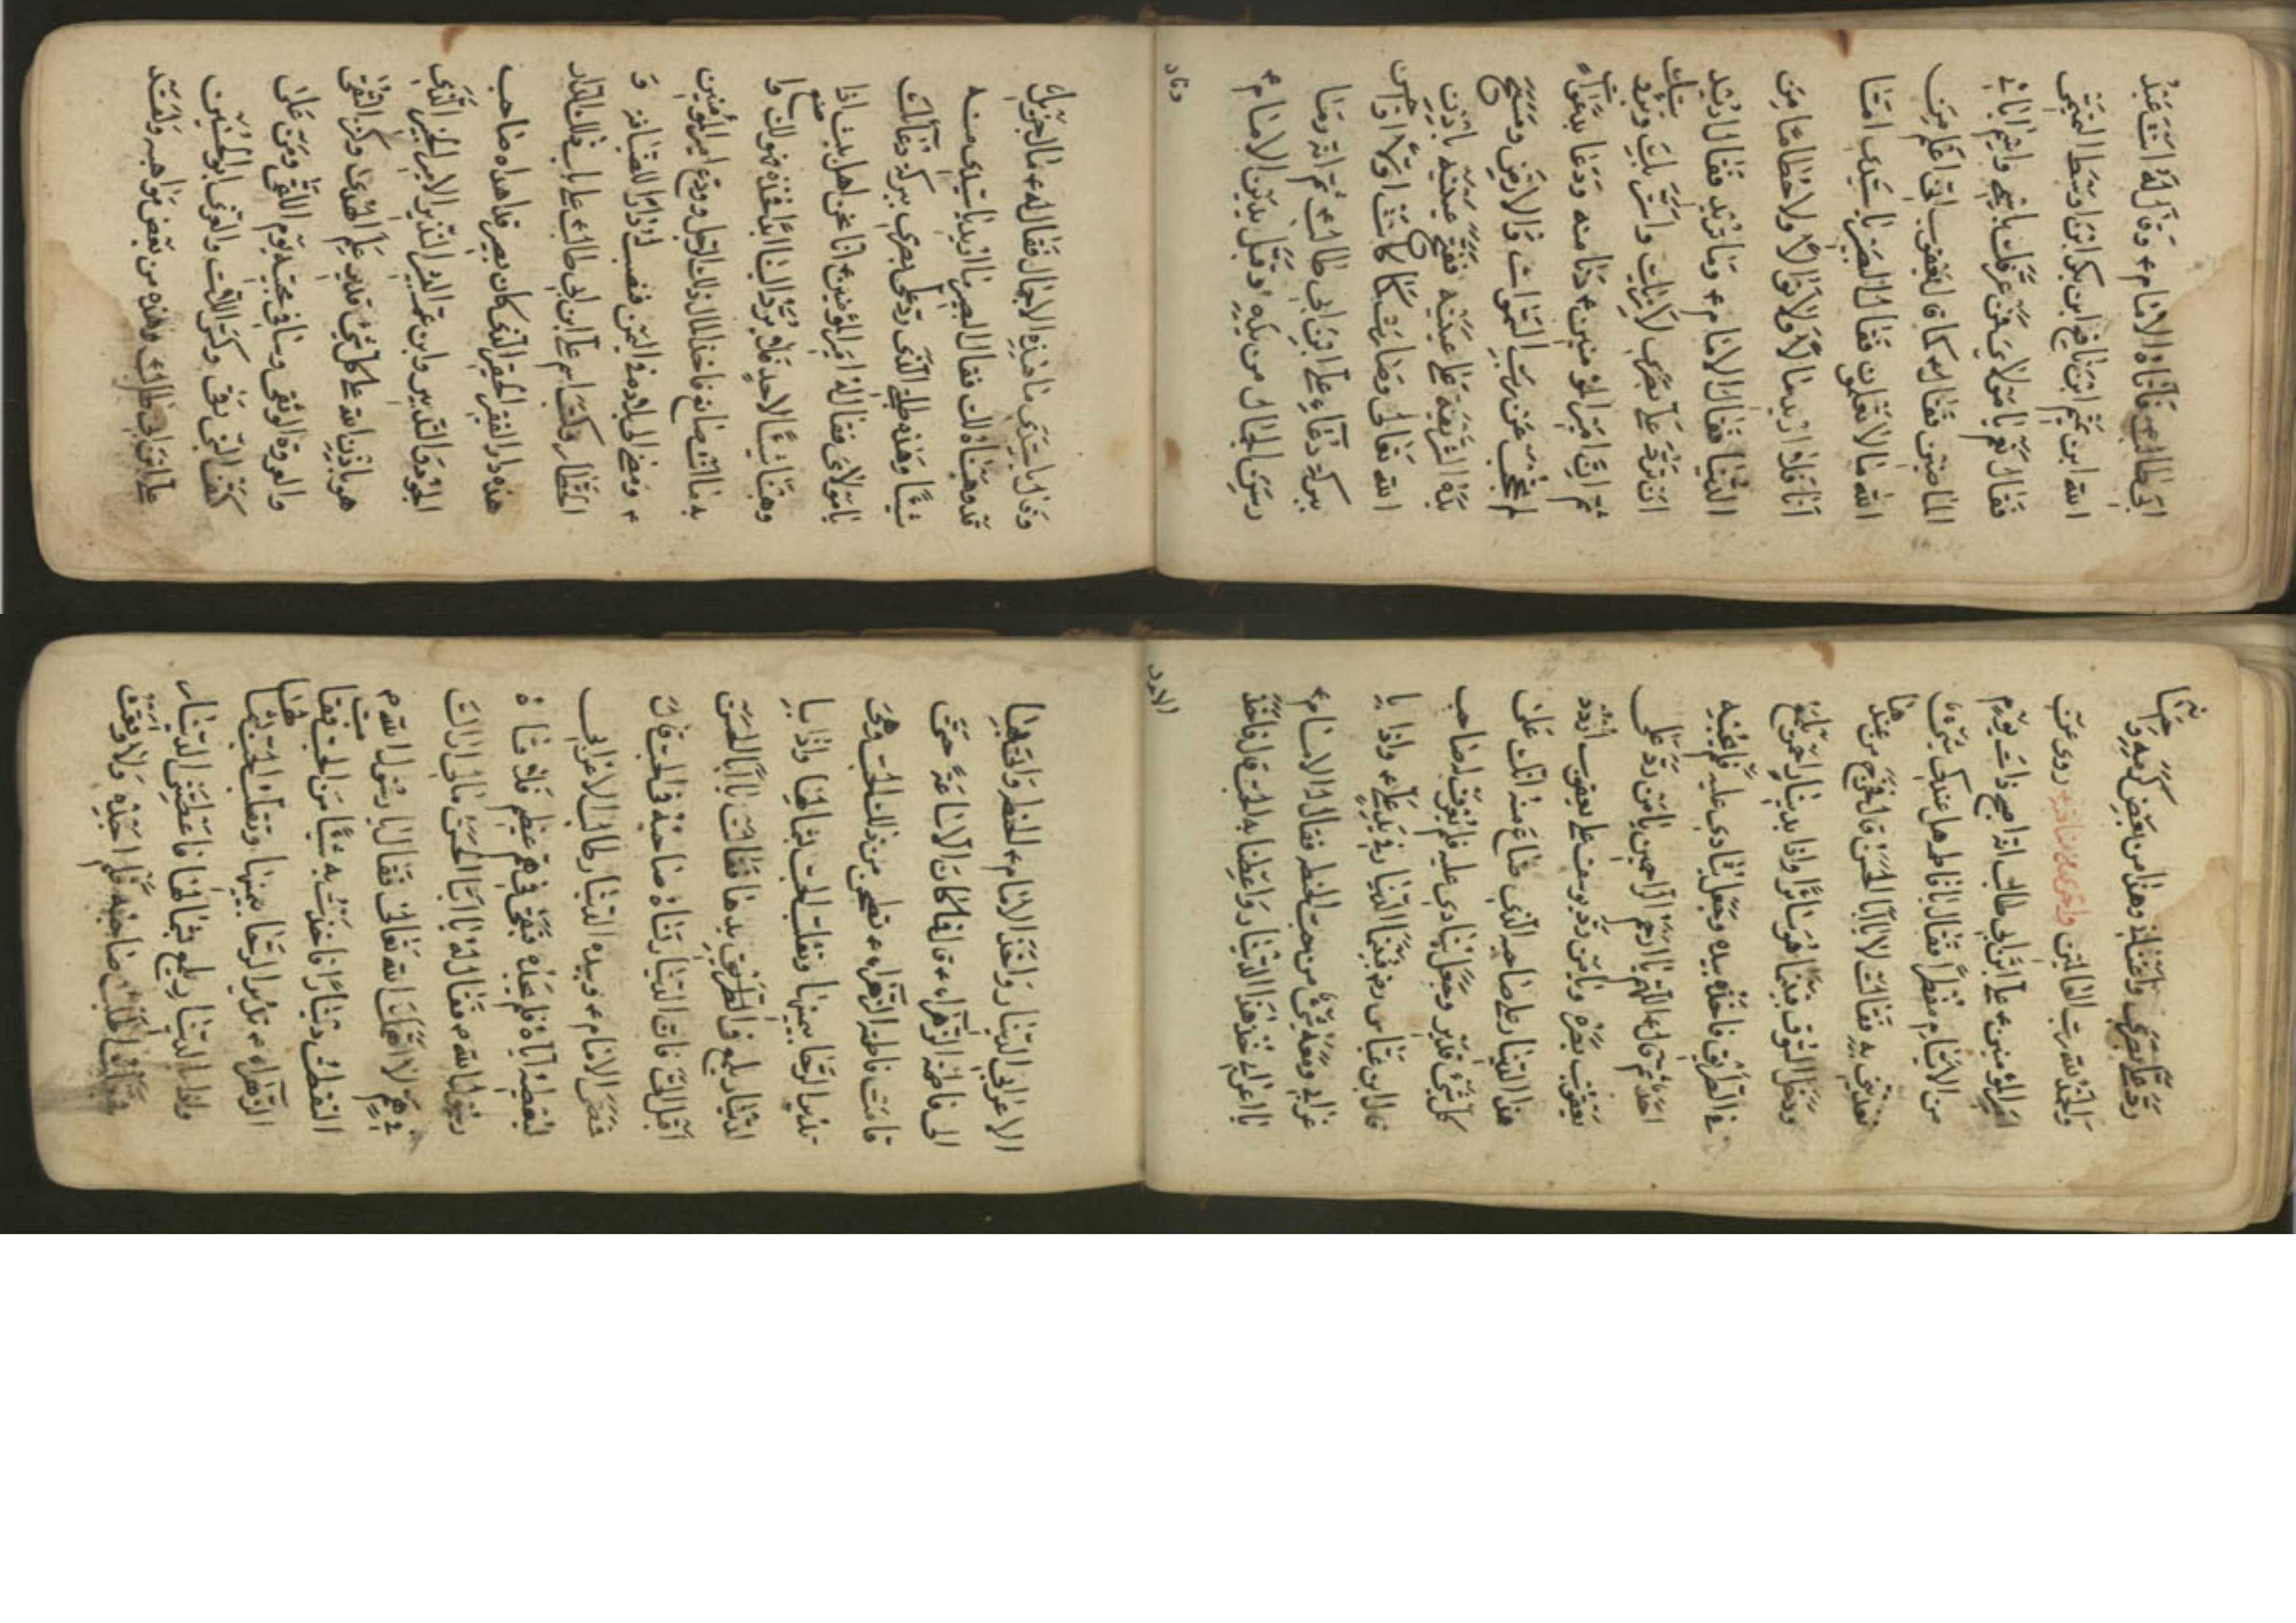 ابي طالب فأتاه الامام ء وقال له انت عبد
الله ابن بكر ابن اوسط النخعي
فقال نعم يا مولاي فمن عرفك باسمي واسم ابائي
الماضين فقال ء كما قال يعقوب اني اعلم من
الله ما لا تعلمون فقال له البصير يا سيدي امّا
انا فلا اريد مالا ولا نوالا ولا حطاما من
الدنيا فقال له الامام ء وما تريد فقال له اريد
ان ترد علي بصري لأراك وأتبرك
ثم ان امير المؤمنين ء دنا منه ودعا بدعاء
لم يحجب عن رب السموات والارض ومسح
بيده الشريفة على عينيه ففتح عينيه باذن
الله تعالى وصارت كما كانت اولا واحسن
ببركة دعاء علي ابن ابي طالب ء ثم انه رما
رسن الجمال من يده وقبل يدين الامام ء
وقال
وقال يا سيدي ما هذه الاجمال فقال له ء مالك جزيل
قد وهبناه لك فقال البصير ما اريد يا سيدي منه
شيئا وهذه طلبتي الذي رد علي بصري ببركة دعائك
يا مولاي فقال له امير المؤمنين ء انا نحن اهل بيت اذا
وهبنا شيئا لاحد فلا يرد الينا ابدا فخذه فهو لك واصنع
به ما انت صانع فاخذ المال ذلك الرجل وودع امير المؤمنين
ء ومضى الى بلاده في اليمن فنصب له دارا للضيافة و
الخطار وكتب اسم علي ابن ابي طالب ء على باب ذلك الدار
هذه دار الفقير الحقير الذي كان بصير فداه صاحب
الجود والتدبير وابن عم البشير النذير الامير الخير الذي
هو باذن الله على كل شيء قدير علم الهدى وكنز التقى
والعروة الوثقى وساقي محبيه يوم اللقى ومن على
كتف النبي رقى وكسر اللات والعزى ابو الحسنين
علي ابن ابي طالب ء وهذه من بعض مواهبه ولقد
رد علي بصري واغناني وهذا من بعض كرمه و حبنا
والحمد لله رب العالمين واخرى من مناقبه روي عن
امير المؤمنين ء علي ابن ابي طالب انه اصبح ذات يوم
من الايام مفطرا فقال يا فاطم هل عندك شيء
نغتذي به فقالت لا يا ابا الحسن قال فخرج من عندها
ودخل السوق فبينما هو سائرا واذا بدينار احمر يلمع
في الطريق فاخذه بيده وجعل ينادي عليه فلم يجبه
احد ثم قال ء اللهم يا ارحم الراحمين يا من رد على
يعقوب بصره ويا من رد يوسف على يعقوب اردد
هذا الدينار على صاحبه الذي ضاع منه انك على
كل شيء قدير وجعل ينادي عليه فلم يعرف له صاحب
قال ابن عباس رض فبينما الدينار في يد علي ء واذا با
عرابي ومعه شيء من حب الحنطه فقال له الامام ء
يا اعرابي خذ هذا الدينار واعطنا به الحب قال فاخذ
الاعرابي
الاعرابي الدينار واخذ الامام ء الحنطه واتى بها
الى فاطمة الزهراء ء قال فما كان الا ساعة حتى
قامت فاطمة الزهراء ء تطحن من ذلك الحب وهي
تدير الرحا بيمينها وتنقلب الحب بشمالها واذا با
لدينار يلمع في الطريق بيدها فقالت يا ابا الحسن
اقبل الي فان الدينار تناه صاحبه في الحب قال
فمضى الامام ء وبيده الدينار طالب الاعرابي
ليعطيه اياه فلم يجده فبقي في هم عظيم فلاقاه
رسول الله ء فقال له يا ابا الحسن مالي اراك
في هم لا اهمك الله تعالى فقال له يا رسول الله ء
التقطت دينارا فاخذت به شيئا من الحب
الزهراء ء تدير الرحا بيمينها وتقلب الحب بشمالها
واذا الدينار يلمع بشمالها فاعطتني الدينار
ولا وقعت